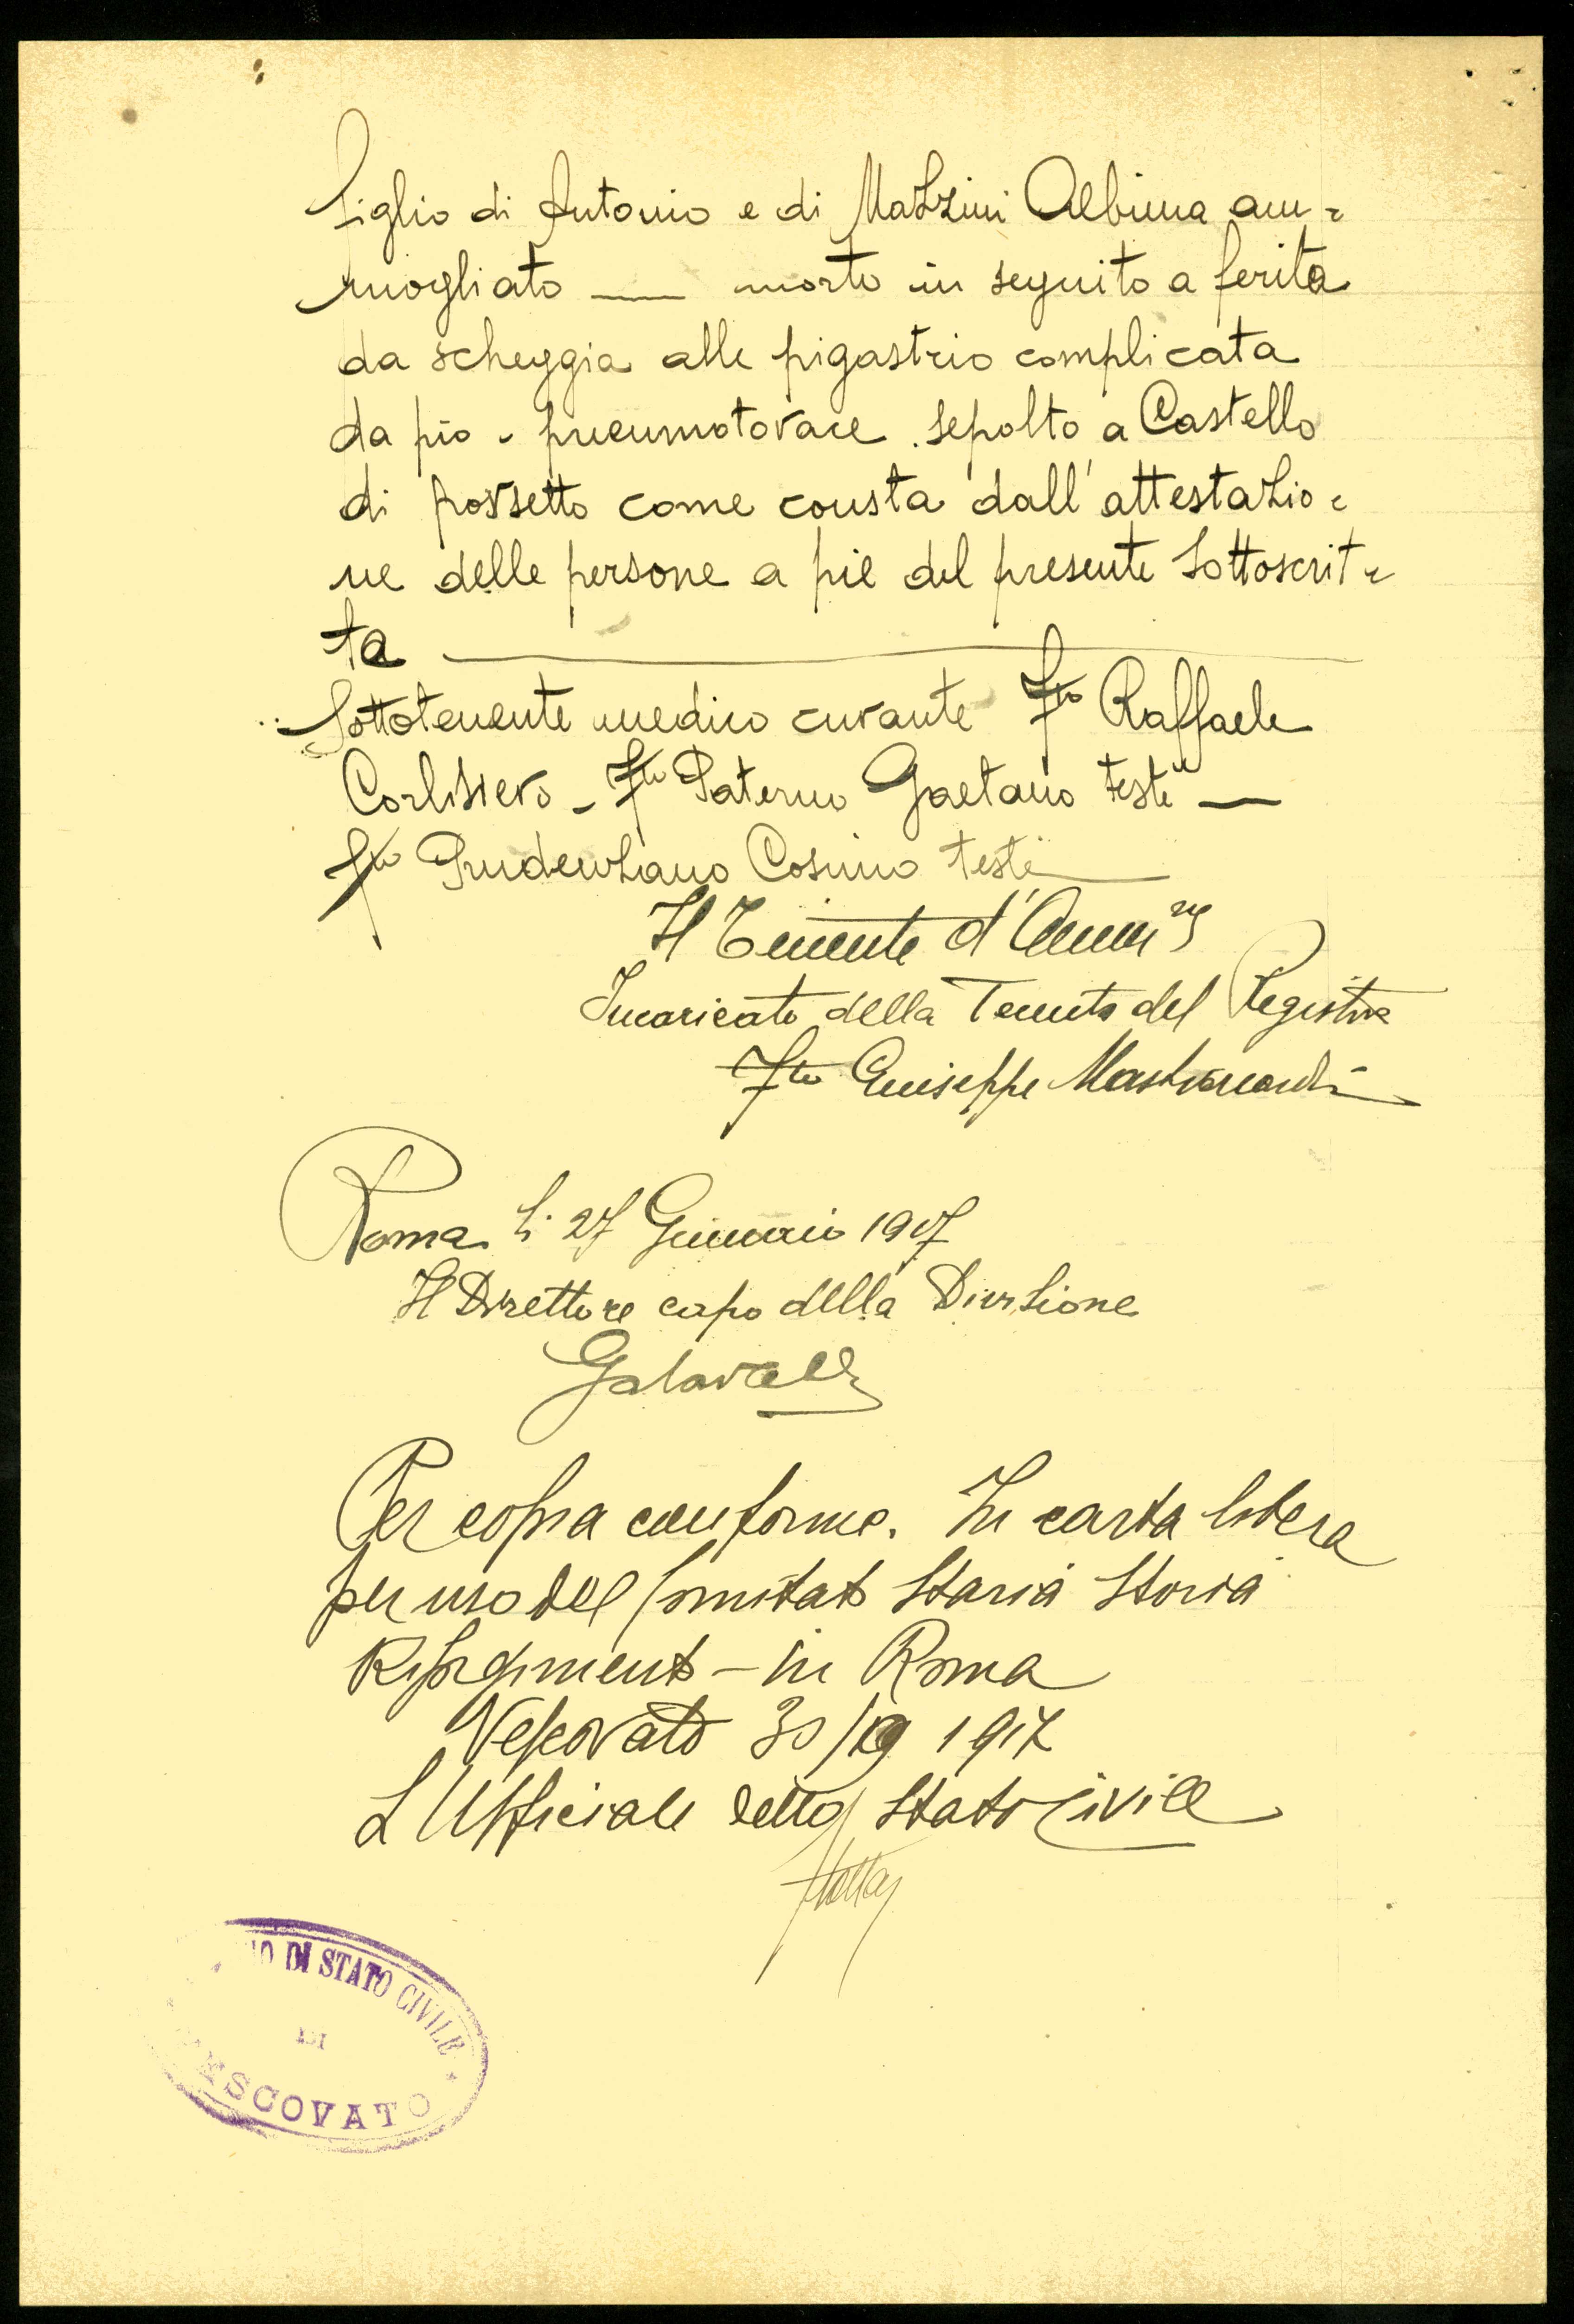 figlio di Antonio e di Mazzini Albina am=
mogliato — morto in seguito a ferita
da scheggia alle pigastrio complicata
da pio - pneumotorace. sepolto a Castello
di possetto come consta dall'attestazio=
ne delle persone a piè del presente sottoscrit=
ta
Sottotenente medico curante Fto Raffaele
- Fto Paterno Gaetano teste —
Fto Prudenzano Cosimo teste
Il Tenente d'Ammne
Incaricato della Tenuta del Registro
Fto Giuseppe
Roma li 27 Gennaio 1917
Il Direttore capo della Divisione
Per copia conforme. In carta libera
per uso del Comitato Storia Storia
Risorgimento - in Roma
Vescovato 30/ 1917
L'Ufficiale dello Stato Civile
IO DI STATO CIVILE
DI
ESCOVATO